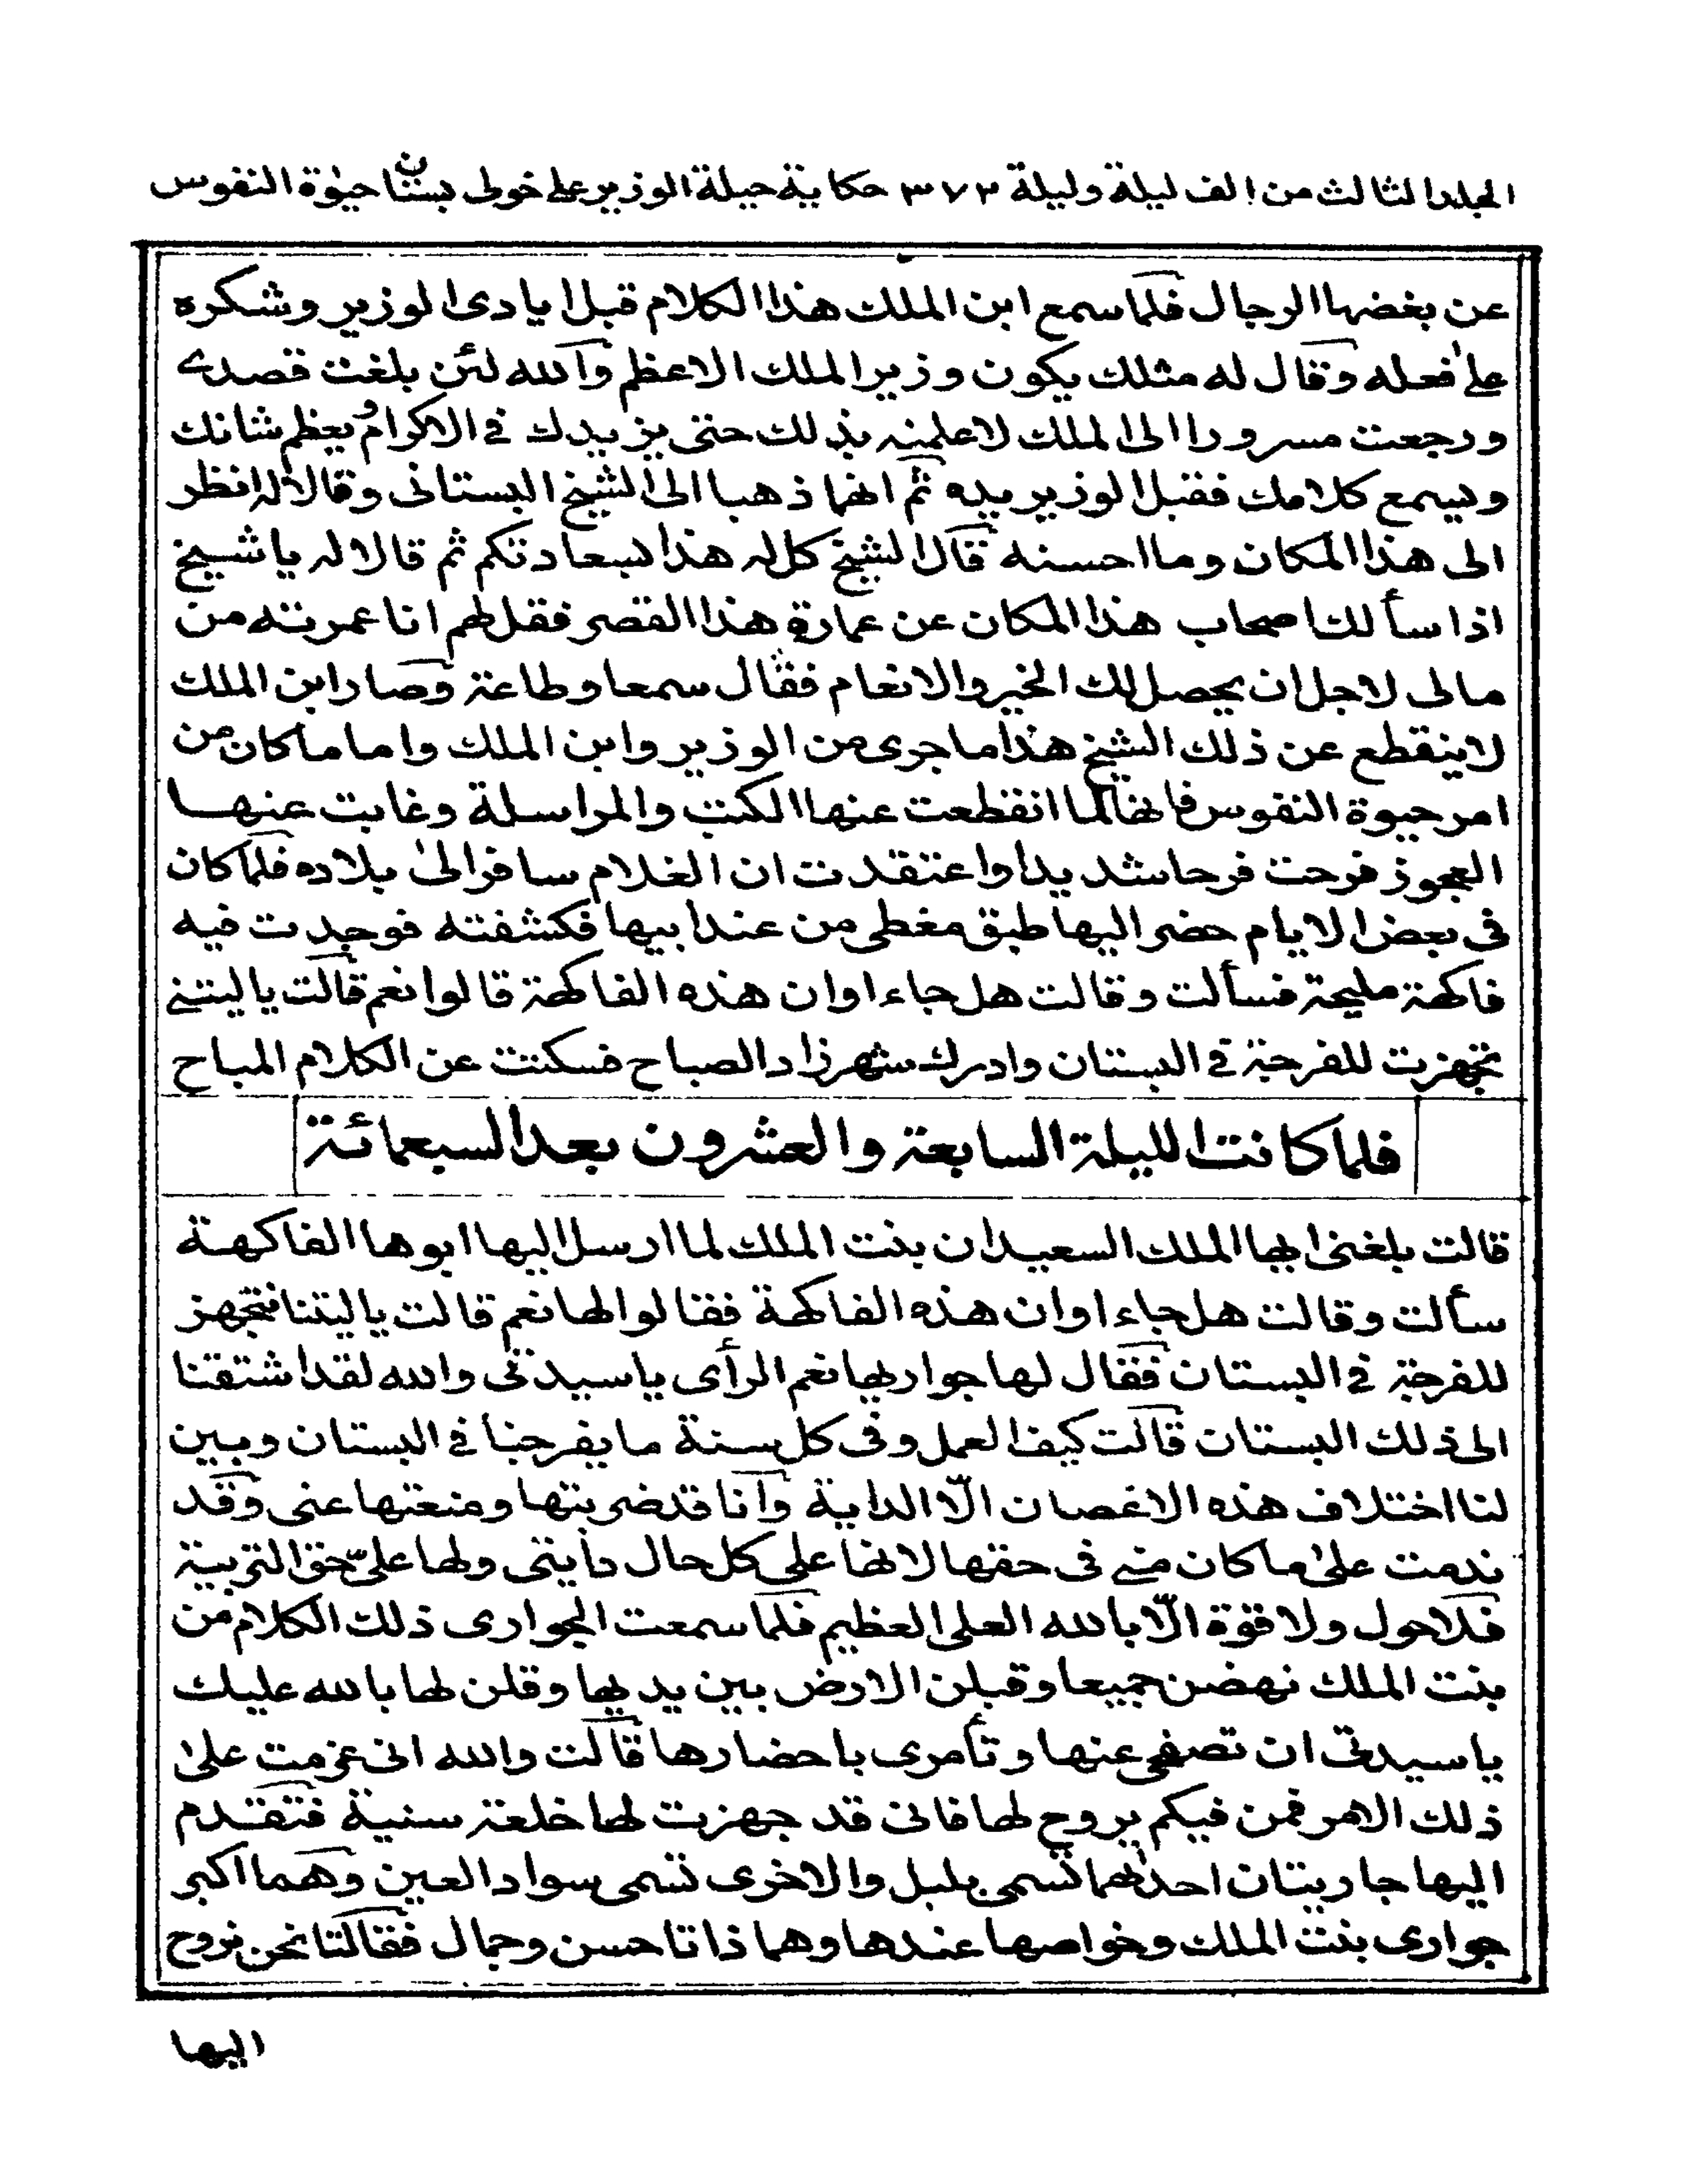 المجلد الثالث من الف ليلة وليلة ٣٧٣ حكاية حيلة الوزير على خولى بستان حيوة النفوس
عن بغضها الرجال فلما سمع ابن الملك هذا الكلام قبل ايادى الوزير وشكره
على فعله وقال له مثلك يكون وزير الملك الاعظم والله لئن بلغت قصدى
ورجعت مسرورا الى الملك لاعلمنه بذلك حتى يزيدك فى الاكرام ويعظم شانك
ويسمع كلامك فقبل الوزير يده ثم انهما ذهبا الى الشيخ البستانى وقالا له انظر
الى هذا المكان وما احسنه قال الشيخ كل له هذا بسعادتكم ثم قالا له يا شيخ
اذا سألك اصحاب هذا المكان عن عمارة هذا القصر فقل لهم انا عمرته من
مالى لاجل ان يحصل لك الخير والانعام فقال سمعا وطاعة وصار ابن الملك
لا ينقطع عن ذلك الشيخ هذا ما جرى من الوزير وابن الملك واما ما كان من
امر حيوة النفوس فانها لما انقطعت عنها الكتب والمراسلة وغابت عنها
العجوز فرحت فرحا شديدا واعتقدت ان الغلام سافر الى بلاده فلما كان
فى بعض الايام حضر اليها طبق مغطى من عند ابيها فكشفته فوجدت فيه
فاكهة مليحة فسألت وقالت هل جاء اوان هذه الفاكهة قالوا نعم قالت يا ليتنى
تجهزت للفرجة فى البستان وادرك شهرزاد الصباح فسكتت عن الكلام المباح
فلما كانت الليلة السابعة والعشرون بعد السبعمائة
قالت بلغنى ايها الملك السعيد ان بنت الملك لما ارسل اليها ابوها الفاكهة
سألت وقالت هل جاء اوان هذه الفاكهة فقالوا لها نعم قالت يا ليتنا نتجهز
للفرجة فى البستان فقال لها جواريها نعم الرأى يا سيدتى والله لقد اشتقنا
الى ذلك البستان قالت كيف العمل وفى كل سنة ما يفرجنا فى البستان ويبين
لنا اختلاف هذه الاغصان الّا الداية وانا قد ضربتها ومنعتها عنى وقد
ندمت على ما كان منى فى حقها لانها على كل حال دايتى ولها علىّ حق التربية
فلا حول ولا قوة الّا بالله العلى العظيم فلما سمعت الجوارى ذلك الكلام من
بنت الملك نهضن جميعا وقبلن الارض بين يديها وقلن لها بالله عليك
يا سيدتى ان تصفحى عنها وتأمرى باحضارها قالت والله انى عزمت على
ذلك الامر فمن فيكم يروح لها فانى قد جهزت لها خلعة سنية فتقدم
اليها جاريتان احدهما تسمى بلبل والاخرى تسمى سواد العين وهما اكبر
جوارى بنت الملك وخواصها عندها وهما ذاتا حسن وجمال فقالتا نحن نروح
اليها